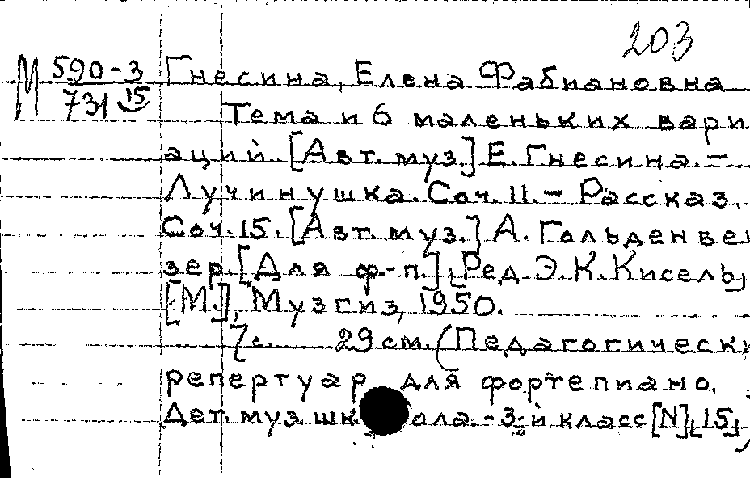 203
М 590-3 Гнесина, Елена Фабиановна
731 15 Тема и 6 маленьких вари
аций. [Авт. муз.] Е. Гнесина. –
Лучинушка. Соч. 11. – Рассказ.
Соч. 15. [Авт. муз.] А. Гольденвей
зер. [Для ф-п.] [Ред. Э. К. Кисель]
[М.], Музгиз, 1950.
7 с. 29 см. (Педагогически
репертуар для фортепиано.
Дет. муз. школа. – 3-й класс [N] [15]